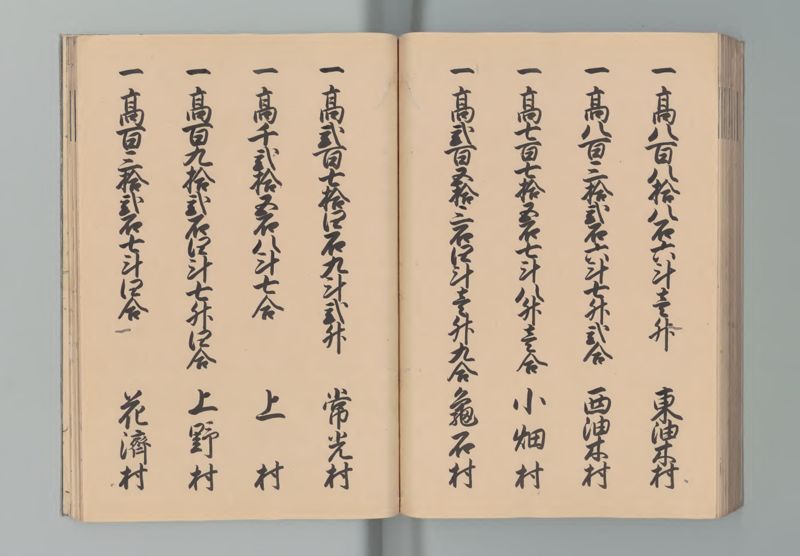 一 高八百八拾八石六斗壱升 東油木村
一 高八百三拾弐石六斗七升弐合 西油木村
一 高七百七拾五石七斗八升壱合 小畑村
一 高弐百五拾三石四斗壱升九合 亀石村
一 高弐百七拾四石九斗弐升 常光村
一 高千弐拾五石八斗七合 上村
一 高百九拾弐石四斗七升四合 上野村
一 高百三拾弐石七斗四合 花濟村